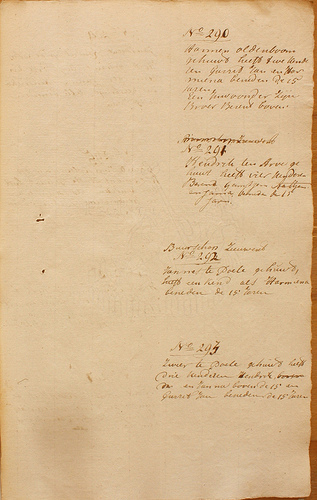 No 290
Harmen oldenboom
gehuwd heeft twe kinder
en Gerret Jan en Har
mena beneden de 15
Jaren
een inwoonder Zijn
Broer Berent boven
No 291
Hendrik ten Arve ge
huwt heeft vier kinderen
Berend
en Janna beneden de 15
Jaren
Buurschap Leuwent
No 292
Jan nis te Poele gehuwd,
heeft een kend als Harmena
beneden de 15 Jaren
No 293
Zweer te Poele gehuwd heeft
drie kinderen Hendrik
en Janna boven de 15 en
Gerret Jan beneden de 15 Jaren